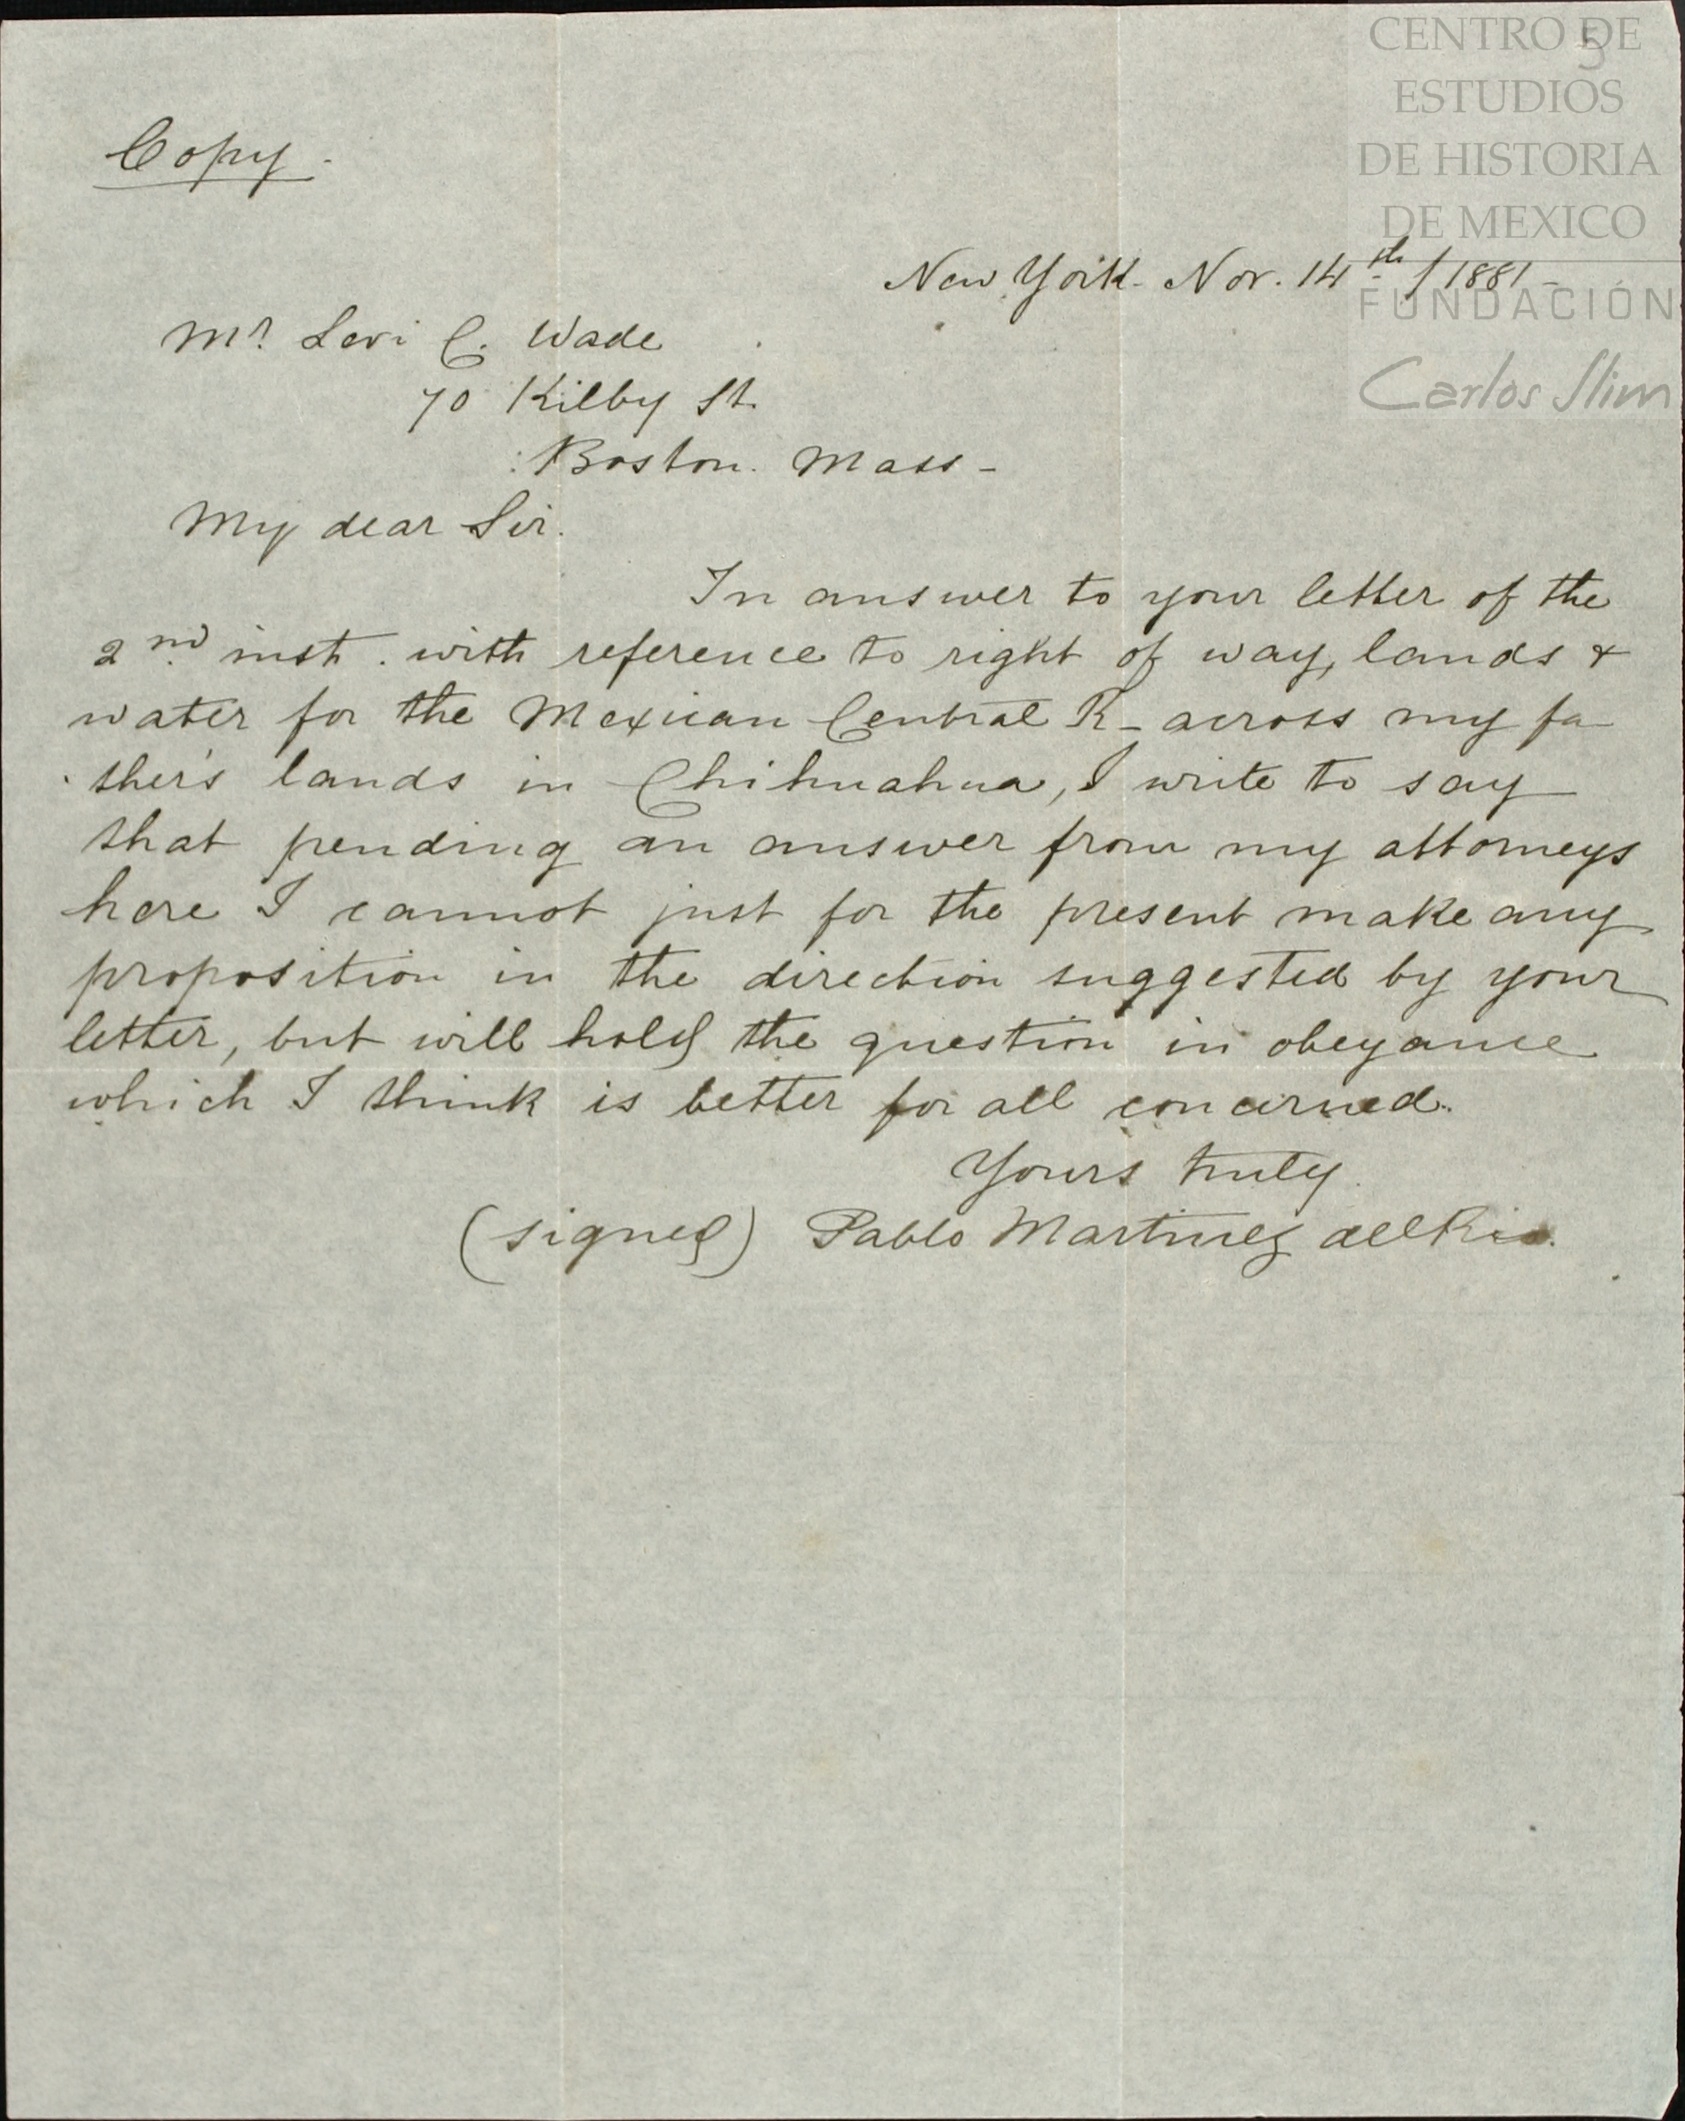 CENTRO DE
ESTUDIOS
DE HISTORIA
DE MEXICO
FUNDACIÓN
Carlos Slim
5
Copy.
New York. Nov. 14th / 1881-
Mr. Levi C. Wade
70 Kilby St.
Boston. Mass-
My dear Sir.
In answer to your letter of the
2nd inst. with reference to right of way, lands &
water for the Mexican Central R- across my fa
ther's lands in Chihuahua, I write to say
that pending an answer from my attorneys
here I cannot just for the present make any
proposition in the direction suggested by your
letter, but will hold the question in obeyance
which I think is better for all concerned.
Yours truly.
(signed) Pablo Martinez del Rio.